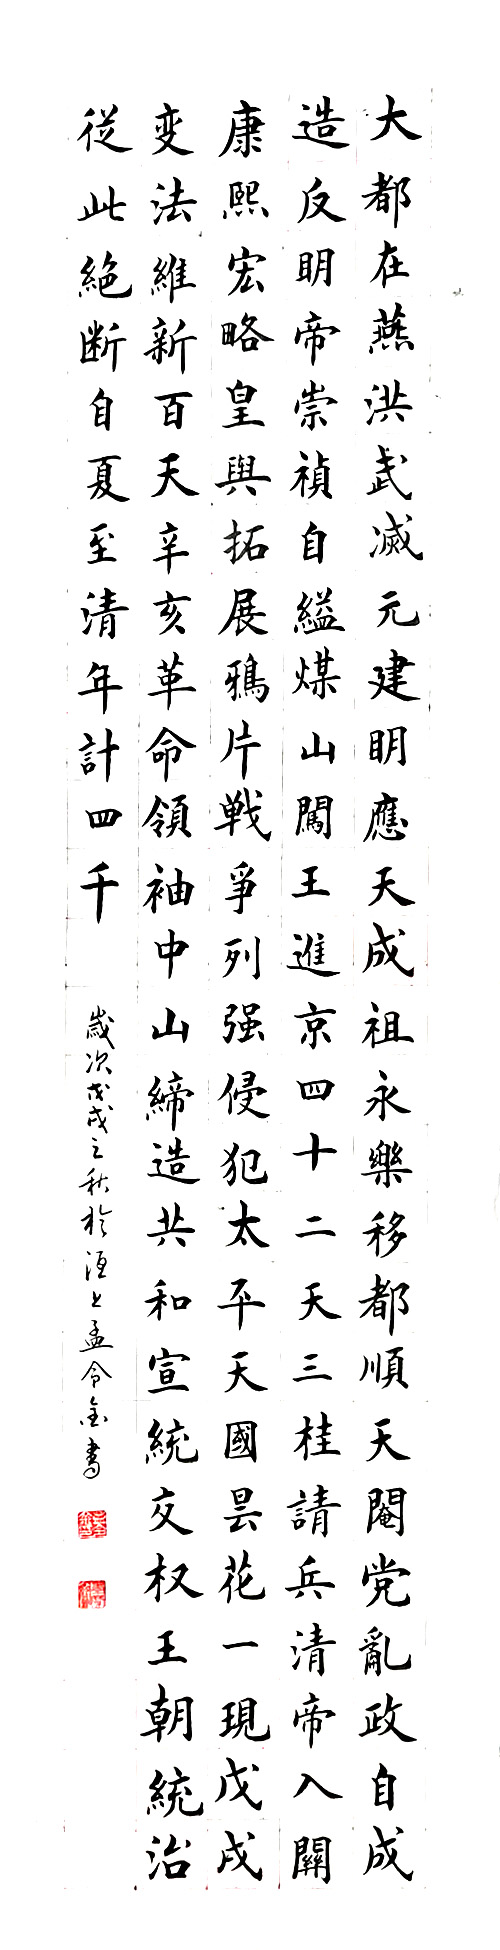 大都在燕洪武滅元建明應天成祖永樂移都順天閹党亂政自成
造反明帝崇禎自縊煤山闖王進京四十二天三桂請兵清帝入關
康熙宏略皇輿拓展鴉片戰爭列强侵犯太平天國曇花一現戊戌
变法維新百天辛亥革命領袖中山締造共和宣統交权王朝統治
從此絕断自夏至清年計四千
歲次戊戌之秋於洹上孟令金書